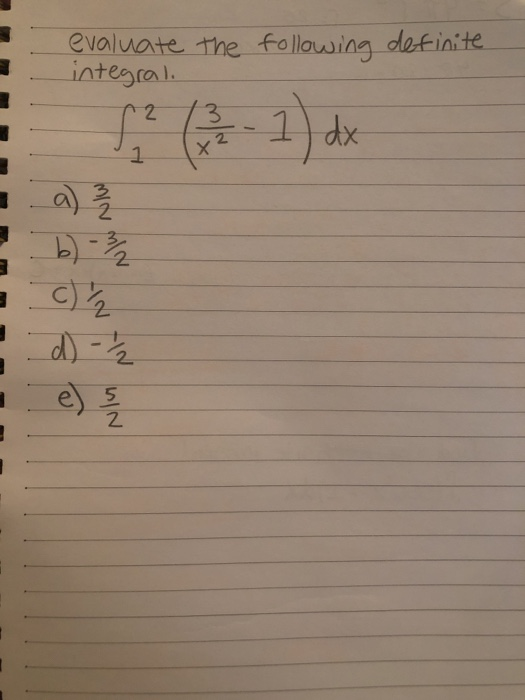 evaluate the following definite
integral.
∫₁² (3/x² - 1) dx
a) 3/2
b) -3/2
c) 1/2
d) -1/2
e) 5/2